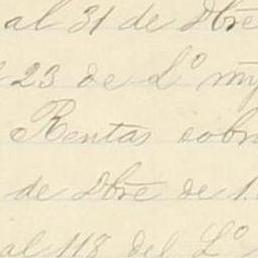 al 31 de Dbre
23 de Lº my
Rentas sobr
de Dbre de 1
al 118 del Lº